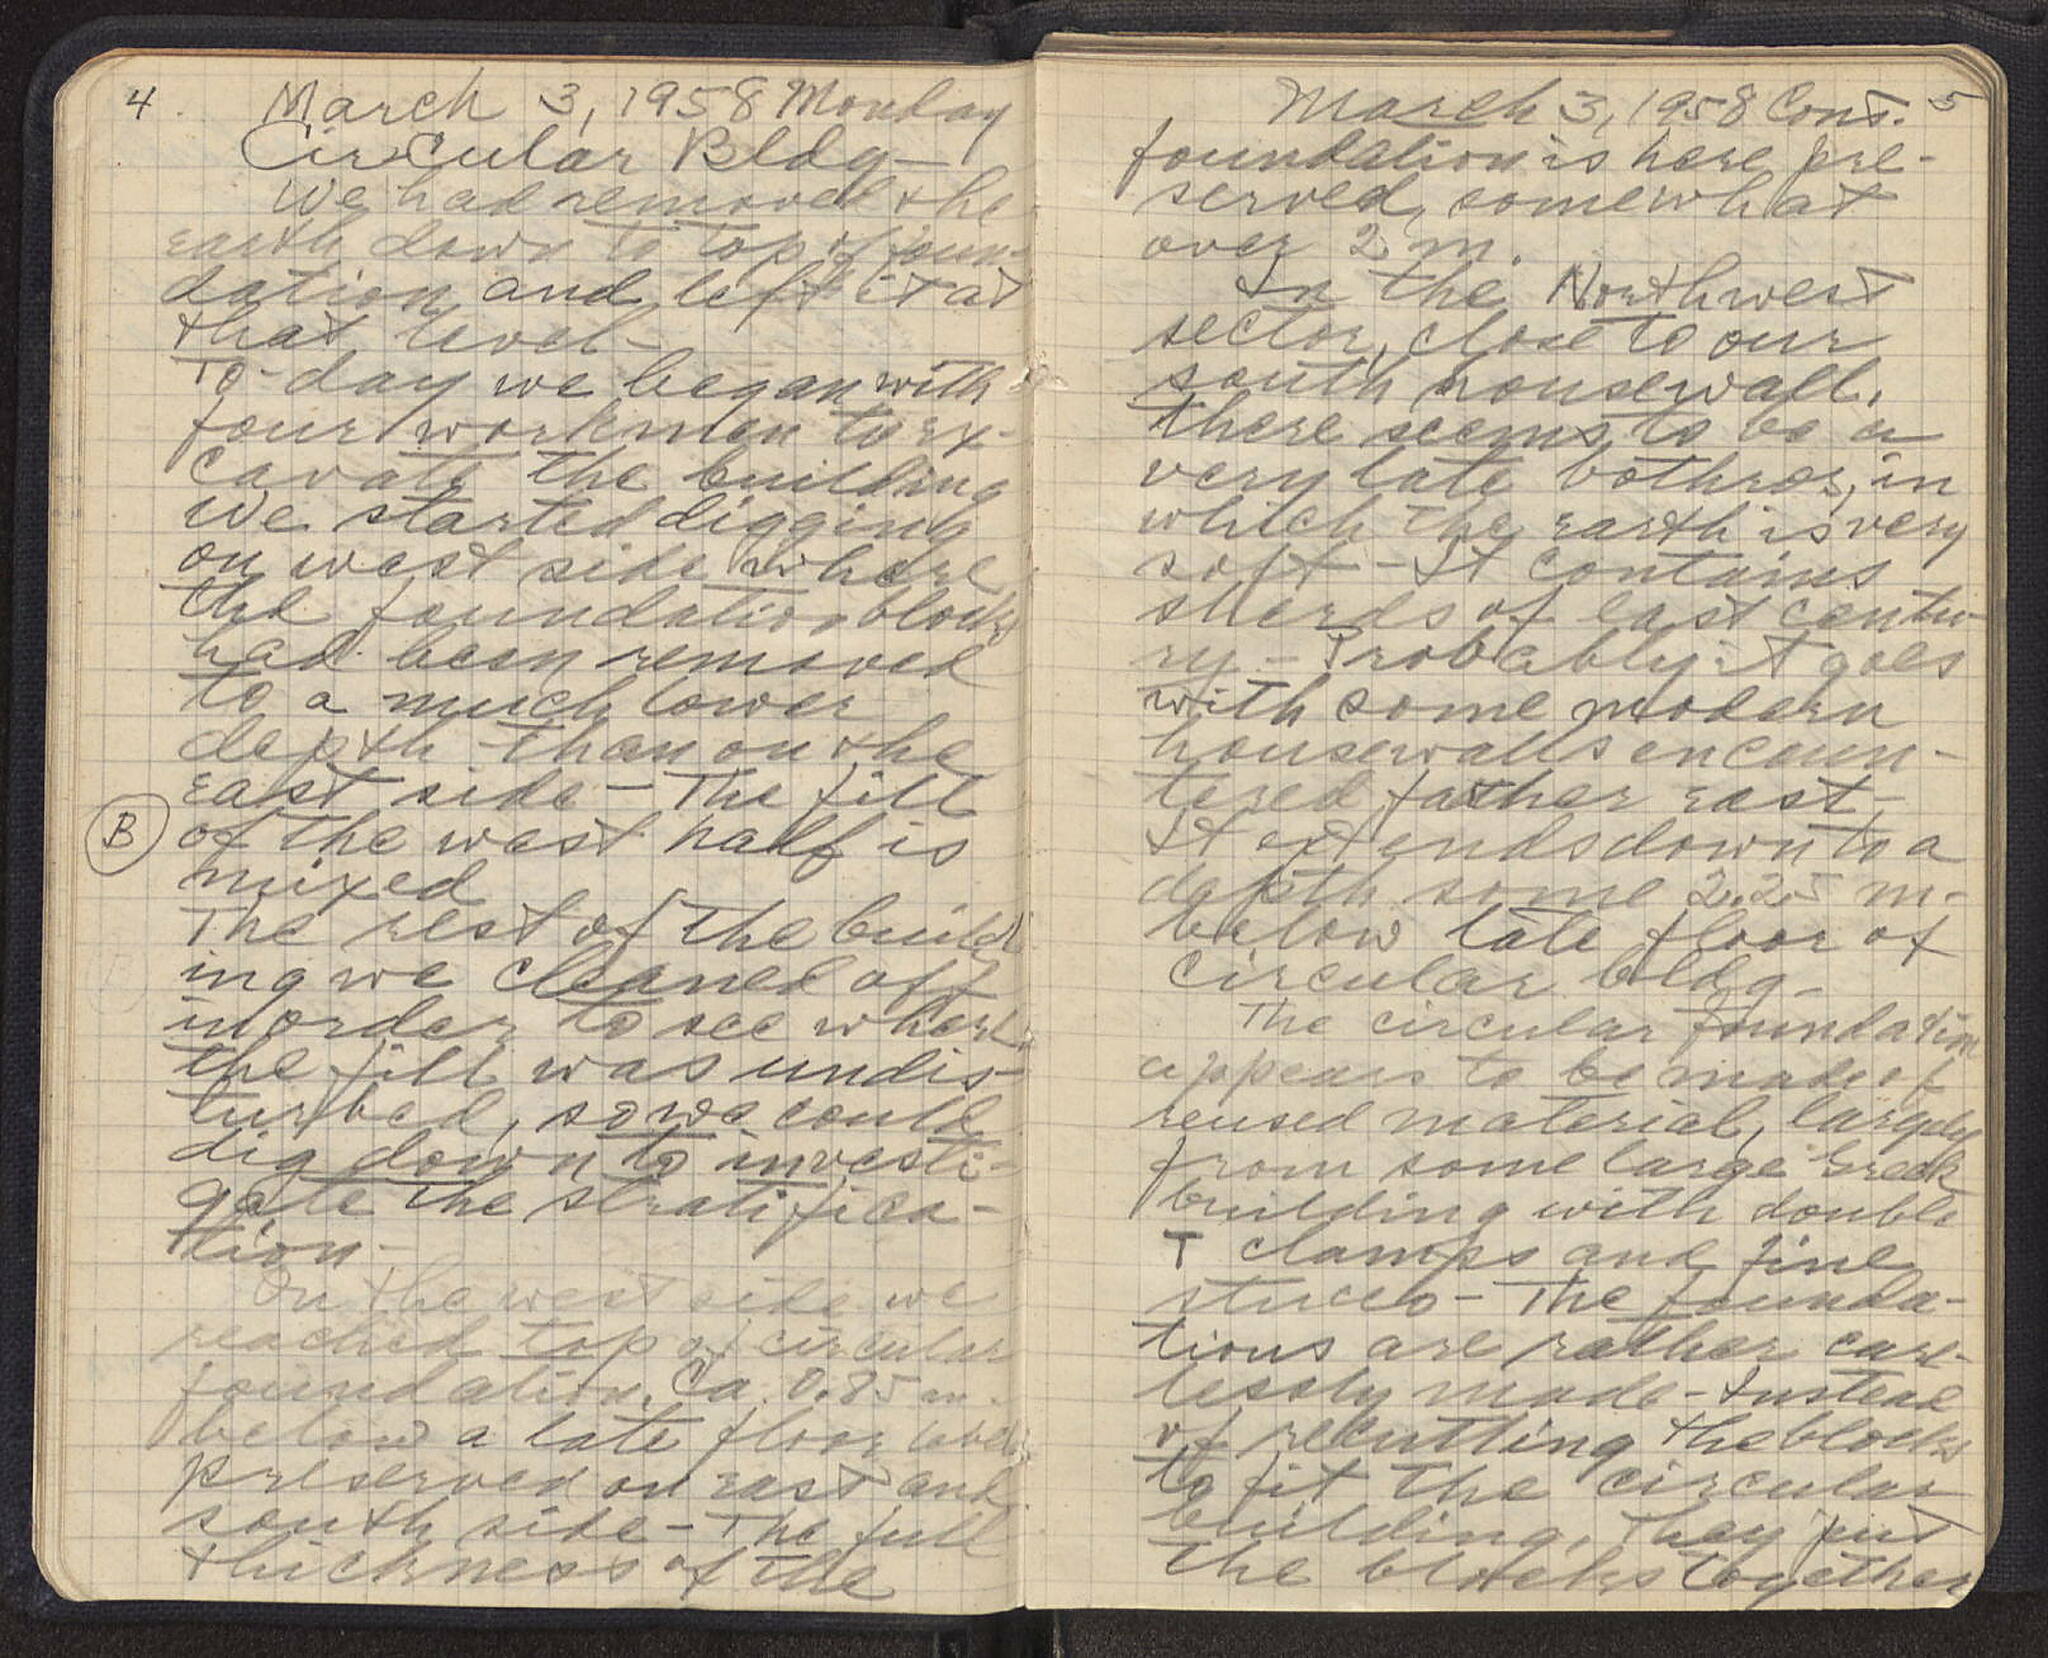 4
March 3, 1958 Monday
Circular Bldg —
We had removed the
earth down to top of foun-
dation and left it at
that level —
To-day we began with
four workmen to ex-
cavate the building
We started digging
on west side where
the foundation blocks
had been removed
to a much lower
depth than on the
east side — The fill
B of the west half is
mixed
The rest of the build
ing we cleaned off
in order to see where
the fill was undis-
turbed, so we could
dig down to investi-
gate the stratifica-
tion —
On the west side we
reached top of circular
foundation, Ca. 0.85 m.
below a late floor
preserved on east and
south side — The full
thickness of the
March 3, 1958 Cont. 5
foundation is here pre-
served, somewhat
over 2 m.
In the Northwest
sector, close to our
south housewall,
there seems to be a
very late bothros, in
which the earth is very
soft — It contains
sherds of last centu-
ry — Probably it goes
with some modern
housewalls encoun-
tered farther east —
It extends down to a
depth some 2.25 m.
below late floor of
circular bldg —
The circular foundation
appears to be made of
reused material, largely
from some large Greek
building with double
T clamps and fine
stucco — The founda-
tions are rather care-
lessly made — Instead
of recutting the blocks
to fit the circular
building, they put
the blocks together